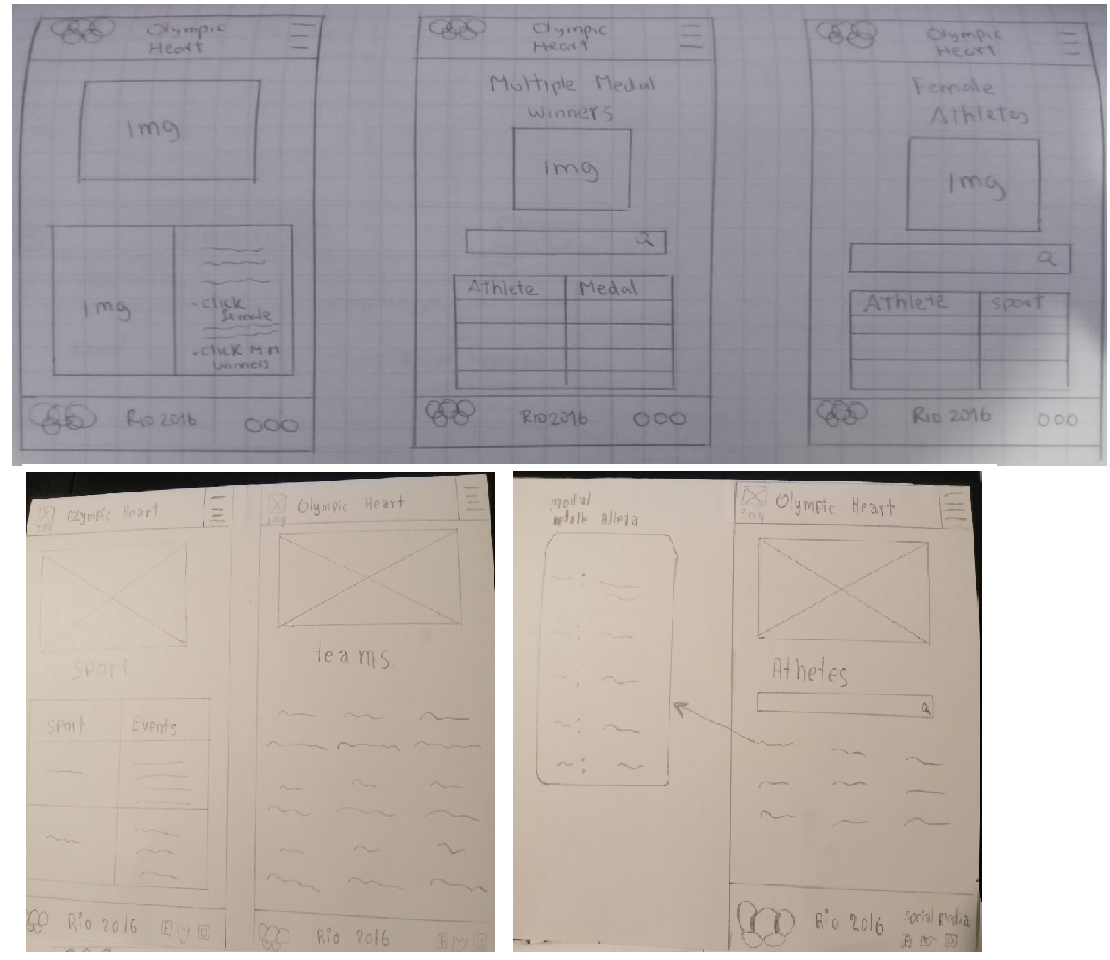 Olympic
Heart
img
img
click
female
click M n
winners
Rio 2016
Olympic
Heart
Multiple Medal
Winners
img
Athlete Medal
Rio 2016
Olympic
Heart
Female
Athletes
img
Athlete Sport
Rio 2016
Olympic Heart
Sport
Sport Events
Rio 2016
img Olympic Heart
teams
Rio 2016
modal
Atleta
img Olympic Heart
Athetes
Rio 2016 Social media